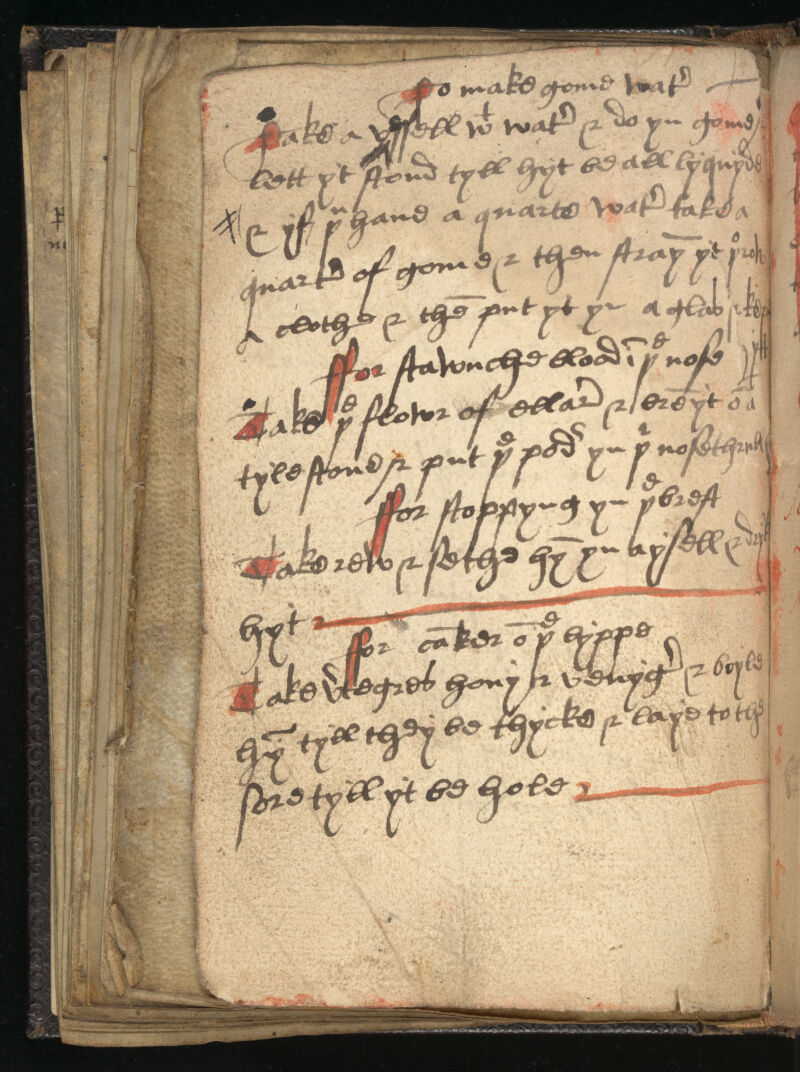 To make gome wat͛
Take a vessell wt wat͛ & do yn gome &
lett yt stond tyll hyt be all lyquyde
& yf þu haue a quarte wat͛ take a
quart͛ of gome & then strayn̄ yt þrow
a clothe & thē put yt yn a glas
ffor stawnche blood ī þe nose
Take þe flowr of ellar͛ & brē yt ō a
tyle stone & put þe pod͛ yn þi nosethrull
ffor stoppyng yn þe brest
Take rew & sethe hȳ yn aysell &
hyt
ffor cāker ō þe lyppe
Take v͛tegres hony & venyg͛ & boyle
hȳ tyll they be thycke & laye to the
sore tyll yt be hole